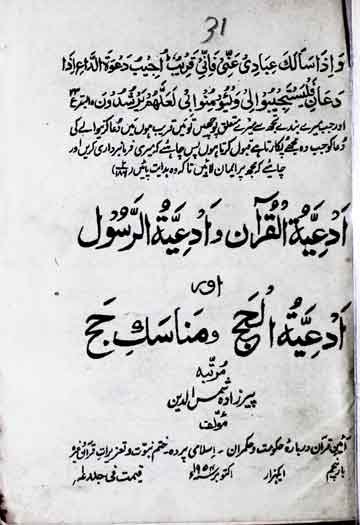 31
وَاِذَا سَاَلَكَ عِبَادِیْ عَنِّیْ فَاِنِّیْ قَرِیْبٌ اُجِیْبُ دَعْوَةَ الدَّاعِ اِذَا
دَعَانِ فَلْیَسْتَجِیْبُوْا لِیْ وَلْیُؤْمِنُوْا بِیْ لَعَلَّهُمْ یَرْشُدُوْنَ
اور جب میرے بندے تجھ سے میرے متعلق پوچھیں تو میں قریب ہوں میں دعا کرنے والے کی
دعا کو جب وہ مجھے پکارتا ہے قبول کرتا ہوں پس چاہئے کہ میری فرمانبرداری کریں اور
چاہئے کہ مجھ پر ایمان لائیں تاکہ وہ ہدایت پائیں
اَدْعِیَّةُ الْقُرْآن وَ اَدْعِیَّةُ الرَّسُوْل
اور
اَدْعِیَّةُ الْحَج وَ مَنَاسِكِ حَج
مرتبہ
پیرزادہ شمس الدین
مؤلف
آئین قرآن دربارہ حکومت و حکمران ۔ اسلامی پردہ ۔ ختم نبوت و تعزیرات قرآن وغیرہ
بار پنجم ایکہزار اکتوبر ۱۹۵۳ء قیمت فی جلد